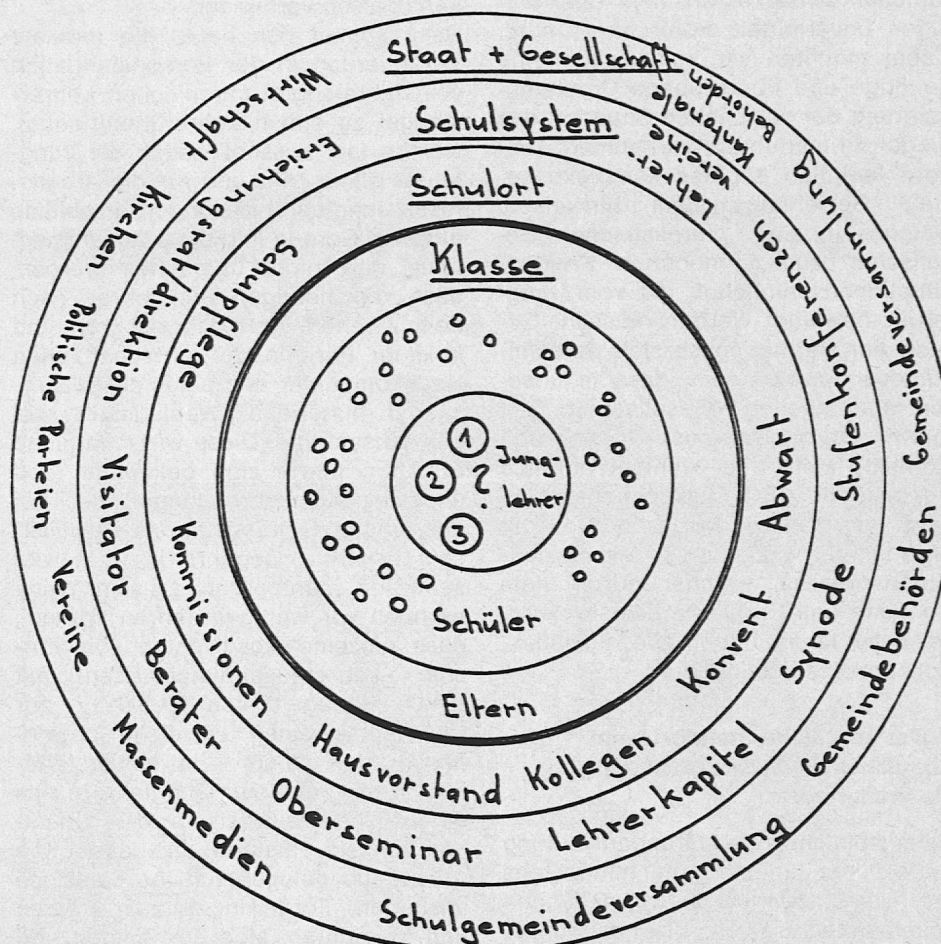 Staat + Gesellschaft
Wirtschaft
Kirchen
Politische Parteien
Vereine
Massenmedien
Schulgemeindeversammlung
Gemeindebehörden
Gemeindeversammlung
Kantonale Behörden
Schulsystem
Erziehungsrat/direktion
Visitator
Berater
Oberseminar
Lehrerkapitel
Synode
Stufenkonferenzen
Lehrer-
vereine
Schulort
Schulpflege
Kommissionen
Hausvorstand
Kollegen
Konvent
Abwart
Klasse
1
2 ?
3
Jung-
lehrer
Schüler
Eltern